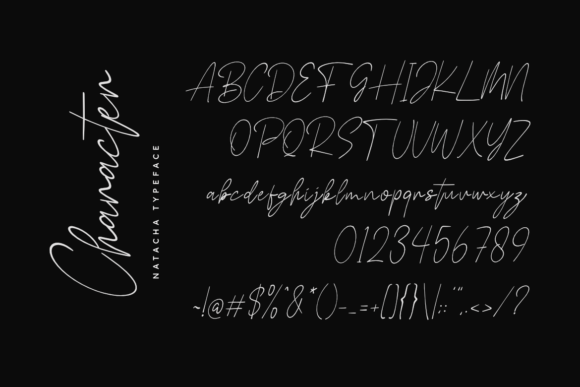 Character
NATACHA TYPEFACE
ABCDEFGHIJKLMN
OPQRSTUVWXYZ
abcdefghijklmnopqrstuvwxyz
0123456789
~!@#$%^&*()-_=+[]{}\|;:'",.<>/?